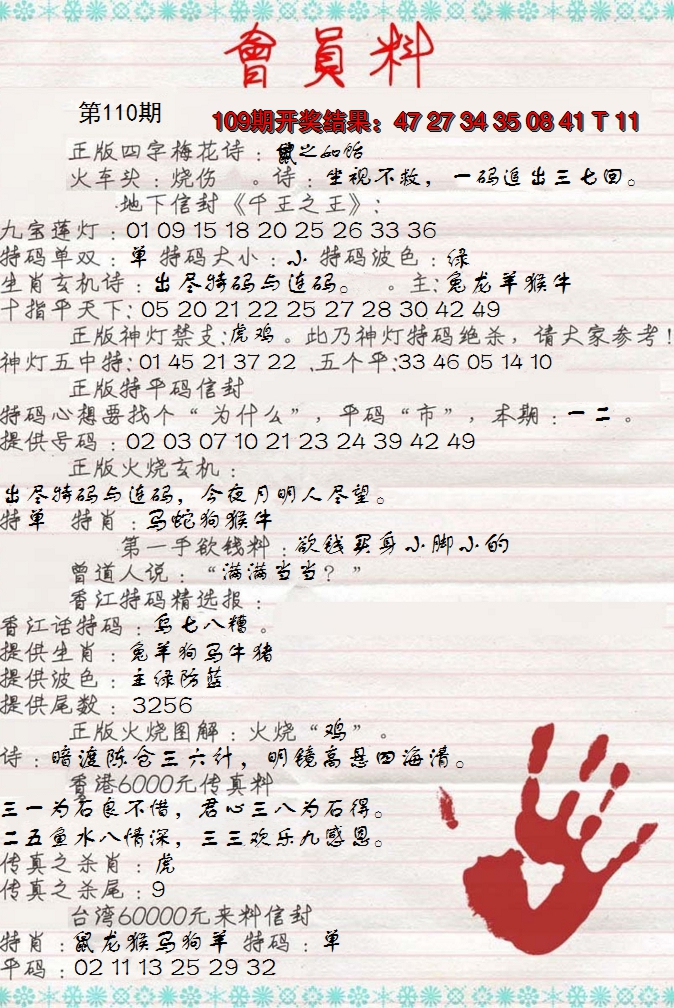 會員料
第110期
109期开奖结果：47 27 34 35 08 41 T 11
正版四字梅花诗：鼠之如饴
火车头：烧伤 。诗：坐视不救，一码追出三七回。
地下信封《千王之王》：
九宝莲灯：01 09 15 18 20 25 26 33 36
特码单双：单 特码大小：小 特码波色：绿
生肖玄机诗：出尽特码与连码。 。主：兔龙羊猴牛
十指平天下：05 20 21 22 25 27 28 30 42 49
正版神灯禁支：虎鸡。此乃神灯特码绝杀，请大家参考！
神灯五中特：01 45 21 37 22 、五个平：33 46 05 14 10
正版特平码信封
特码心想要找个“为什么”，平码“市”，本期：一二。
提供号码：02 03 07 10 21 23 24 39 42 49
正版火烧玄机：
出尽特码与连码，今夜月明人尽望。
特单 特肖：马蛇狗猴牛
第一手欲钱料：欲钱买身小脚小的
曾道人说：“满满当当？”
香江特码精选报：
香江话特码：乌七八糟。
提供生肖：兔羊狗马牛猪
提供波色：主绿防蓝
提供尾数：3256
正版火烧图解：火烧“鸡”。
诗：暗渡陈仓三六计，明镜高悬四海清。
香港6000元传真料
三一为石良不惜，君心三八为石得。
二五鱼水八情深，三三欢乐九感恩。
传真之杀肖：虎
传真之杀尾：9
台湾60000元来料信封
特肖：鼠龙猴马狗羊 特码：单
平码：02 11 13 25 29 32